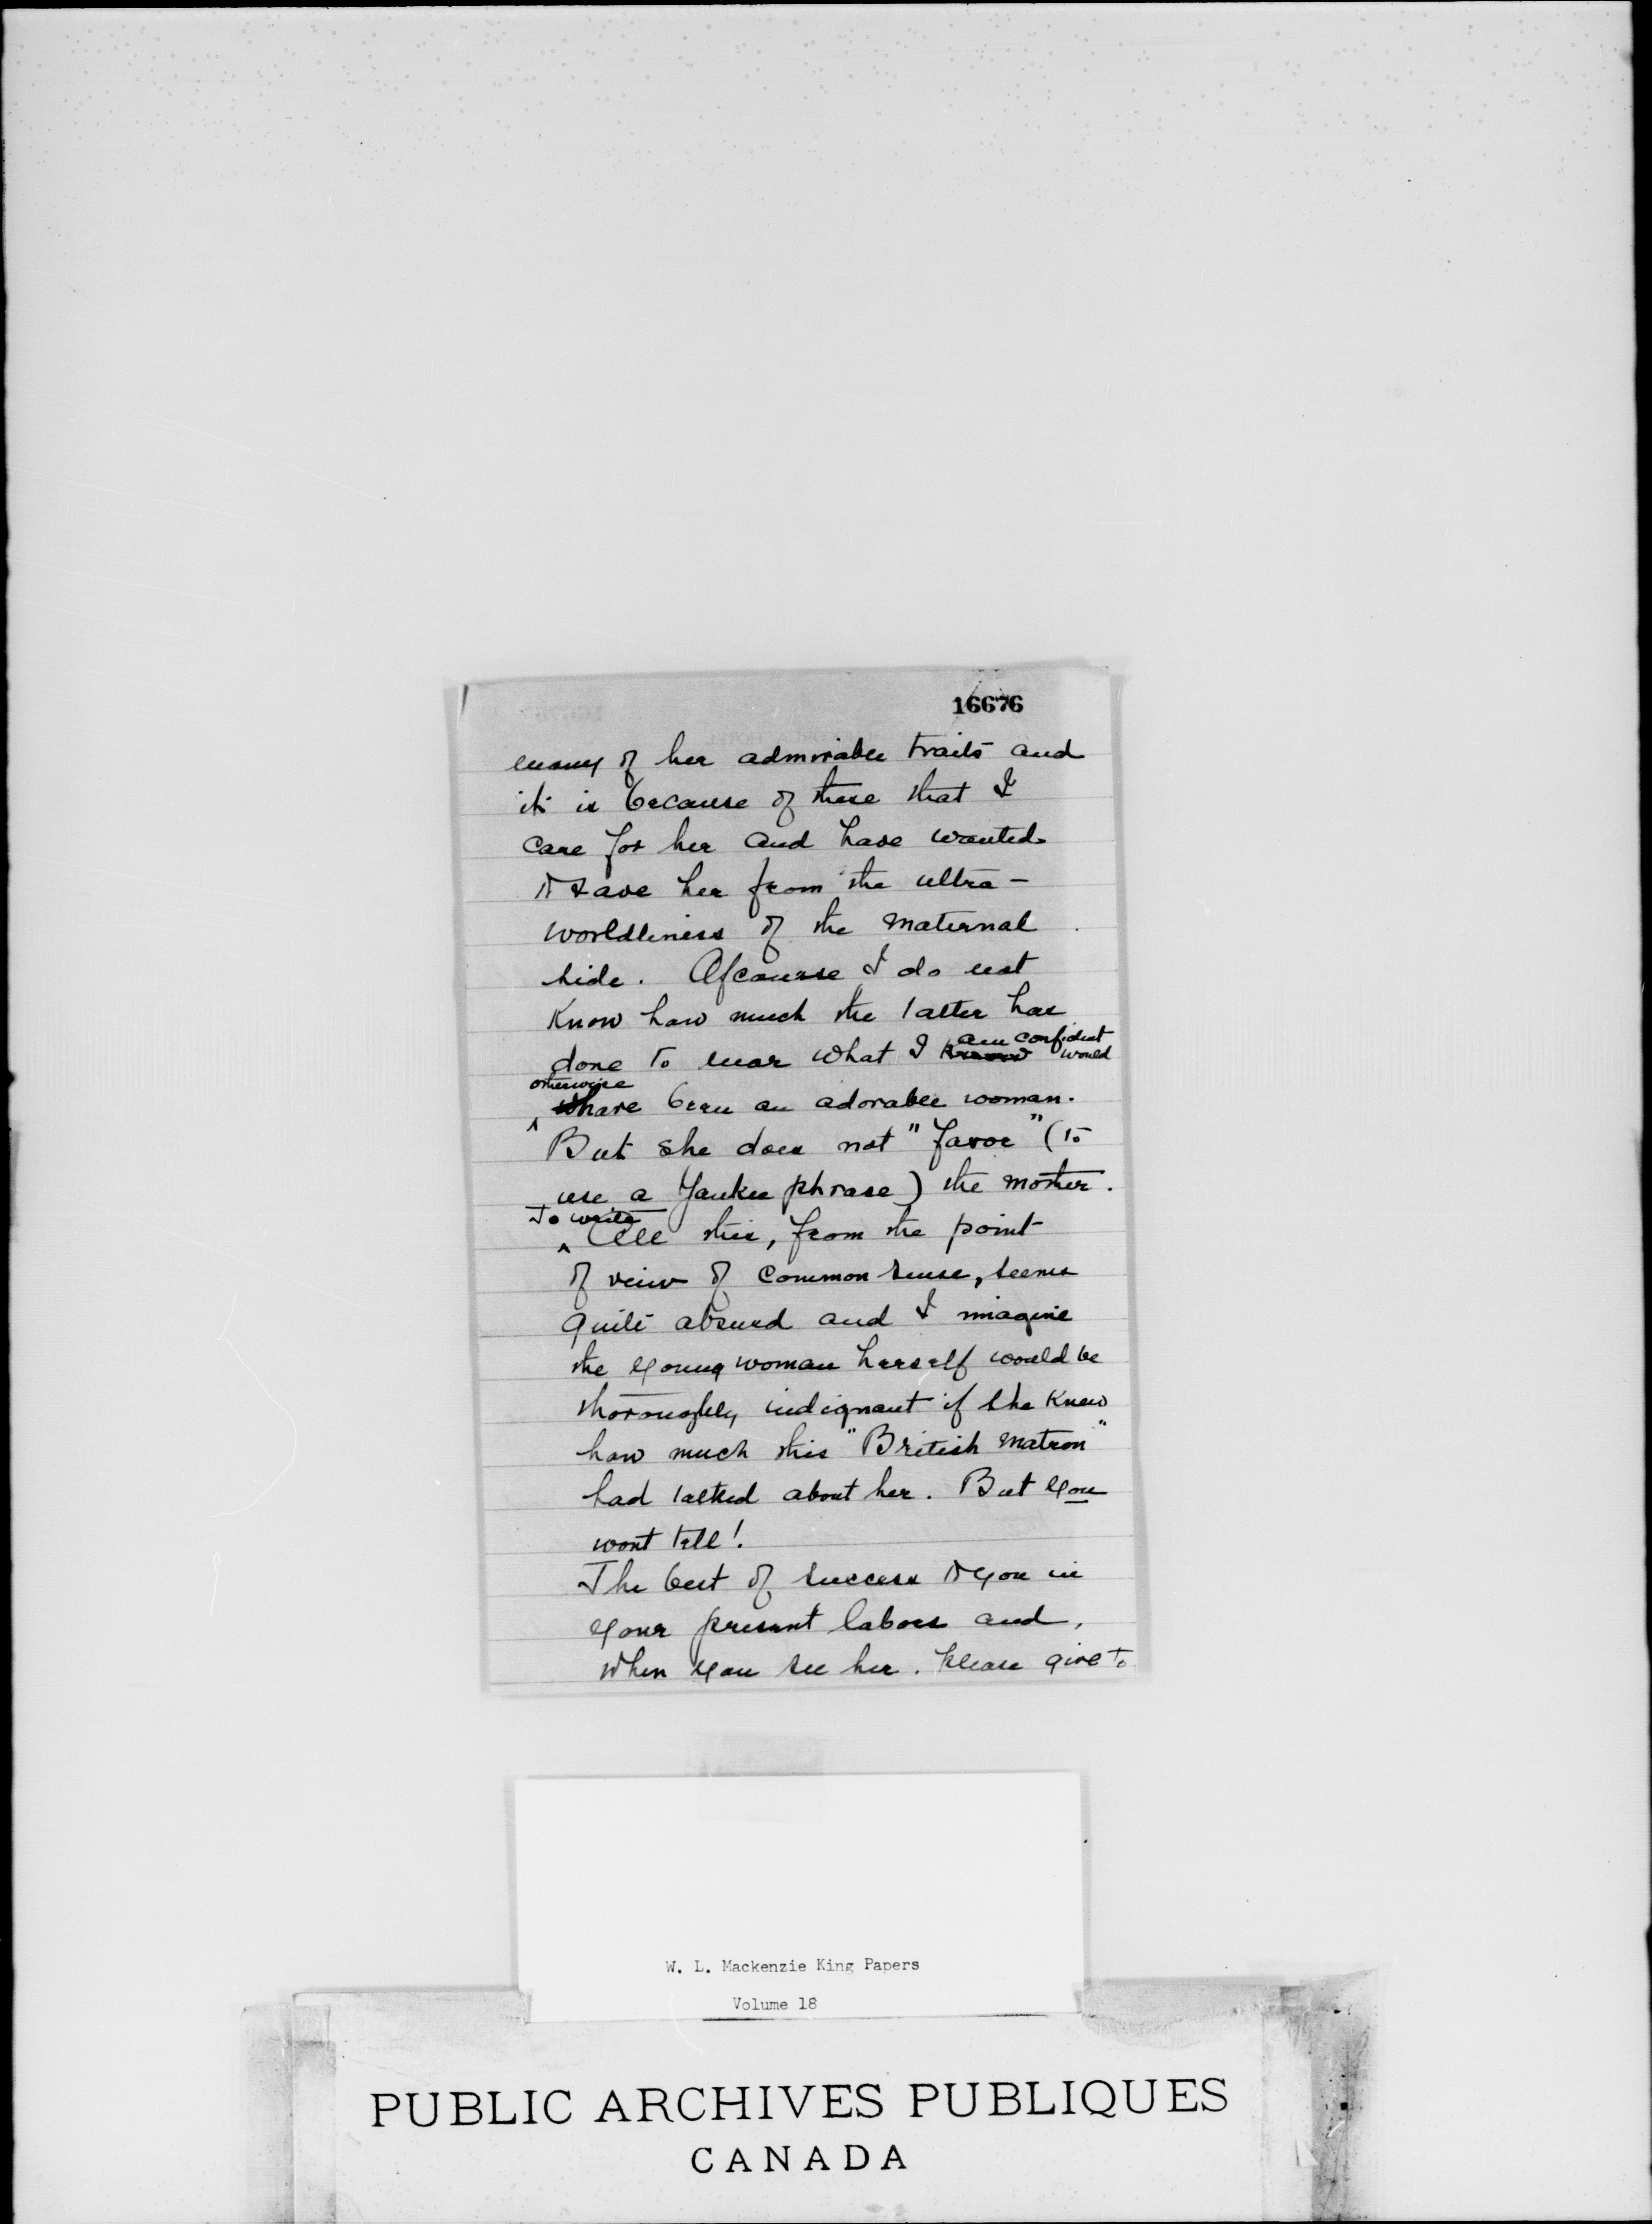 16676
many of her admirable traits and
it is because of these that I
care for her and have wanted
to save her from the ultra-
worldliness of the maternal
side. Ofcourse I do not
know how much the latter has
done to mar what I know am confident would
otherwise have been an adorable woman.
But she does not "favor" (to
use a Yankee phrase) the mother.
To write all this, from the point
of view of common sense, seems
quite absurd and I imagine
the young woman herself would be
thoroughly indignant if she knew
how much this "British Matron"
had talked about her. But you
wont tell!
The best of success to you in
your present labors and,
when you see her, please give to
W. L. Mackenzie King Papers
Volume 18
PUBLIC ARCHIVES PUBLIQUES
CANADA